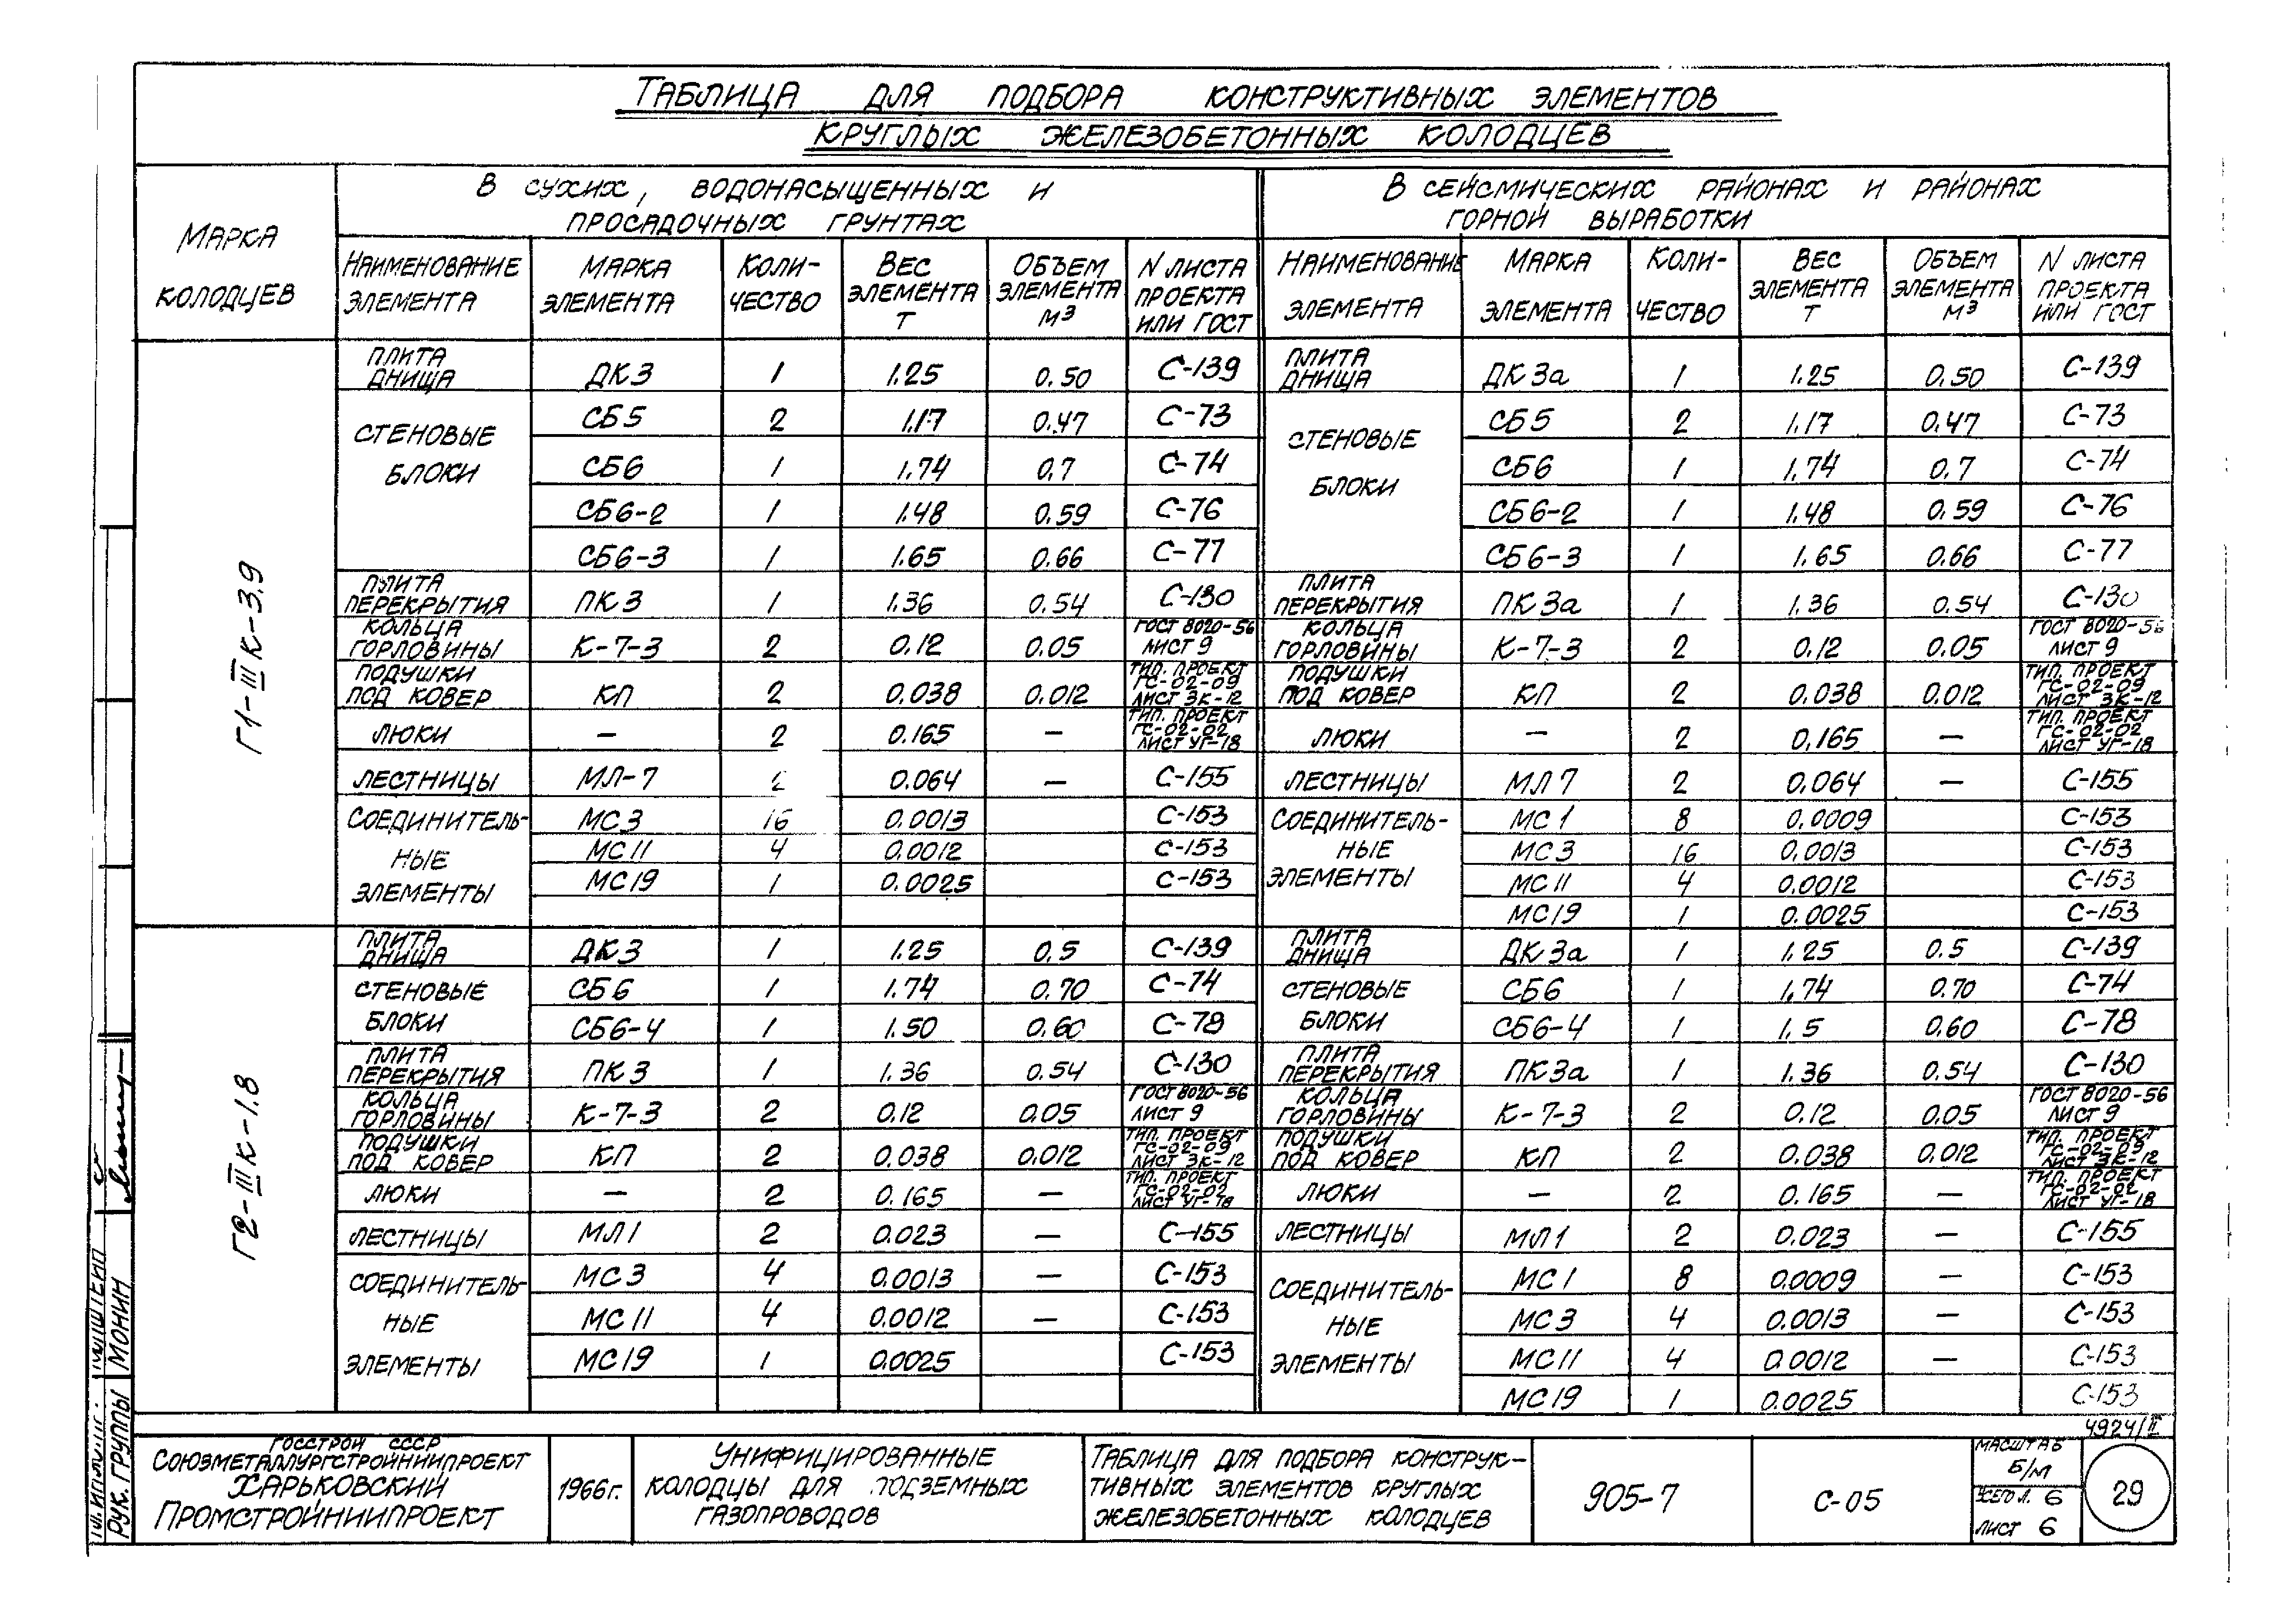 ТАБЛИЦА ДЛЯ ПОДБОРА КОНСТРУКТИВНЫХ ЭЛЕМЕНТОВ
КРУГЛЫХ ЖЕЛЕЗОБЕТОННЫХ КОЛОДЦЕВ
МАРКА КОЛОДЦЕВ
В СУХИХ, ВОДОНАСЫЩЕННЫХ И ПРОСАДОЧНЫХ ГРУНТАХ
В СЕЙСМИЧЕСКИХ РАЙОНАХ И РАЙОНАХ ГОРНОЙ ВЫРАБОТКИ
НАИМЕНОВАНИЕ ЭЛЕМЕНТА МАРКА ЭЛЕМЕНТА КОЛИ-ЧЕСТВО ВЕС ЭЛЕМЕНТА Т ОБЪЕМ ЭЛЕМЕНТА М³ N ЛИСТА ПРОЕКТА ИЛИ ГОСТ НАИМЕНОВАНИЕ ЭЛЕМЕНТА МАРКА ЭЛЕМЕНТА КОЛИ-ЧЕСТВО ВЕС ЭЛЕМЕНТА Т ОБЪЕМ ЭЛЕМЕНТА М³ N ЛИСТА ПРОЕКТА ИЛИ ГОСТ
Г1-IIIК-3.9
ПЛИТА ДНИЩА ДК3 1 1.25 0.50 С-139 ПЛИТА ДНИЩА ДК3а 1 1.25 0.50 С-139
СТЕНОВЫЕ БЛОКИ СБ5 2 1.17 0.47 С-73 СТЕНОВЫЕ БЛОКИ СБ5 2 1.17 0.47 С-73
СБ6 1 1.74 0.7 С-74 СБ6 1 1.74 0.7 С-74
СБ6-2 1 1.48 0.59 С-76 СБ6-2 1 1.48 0.59 С-76
СБ6-3 1 1.65 0.66 С-77 СБ6-3 1 1.65 0.66 С-77
ПЛИТА ПЕРЕКРЫТИЯ ПК3 1 1.36 0.54 С-130 ПЛИТА ПЕРЕКРЫТИЯ ПК3а 1 1.36 0.54 С-130
КОЛЬЦА ГОРЛОВИНЫ К-7-3 2 0.12 0.05 ГОСТ 8020-56 ЛИСТ 9 КОЛЬЦА ГОРЛОВИНЫ К-7-3 2 0.12 0.05 ГОСТ 8020-56 ЛИСТ 9
ПОДУШКИ ПОД КОВЕР КП 2 0.038 0.012 ТИП. ПРОЕКТ ГС-02-09 ЛИСТ ЗК-12 ПОДУШКИ ПОД КОВЕР КП 2 0.038 0.012 ТИП. ПРОЕКТ ГС-02-09 ЛИСТ ЗК-12
ЛЮКИ — 2 0.165 — ТИП. ПРОЕКТ ГС-02-02 ЛИСТ УГ-18 ЛЮКИ — 2 0.165 — ТИП. ПРОЕКТ ГС-02-02 ЛИСТ УГ-18
ЛЕСТНИЦЫ МЛ-7 2 0.064 — С-155 ЛЕСТНИЦЫ МЛ7 2 0.064 — С-155
СОЕДИНИТЕЛЬ-НЫЕ ЭЛЕМЕНТЫ МС3 16 0.0013 С-153 СОЕДИНИТЕЛЬ-НЫЕ ЭЛЕМЕНТЫ МС1 8 0.0009 С-153
МС11 4 0.0012 С-153 МС3 16 0.0013 С-153
МС19 1 0.0025 С-153 МС11 4 0.0012 С-153
МС19 1 0.0025 С-153
Г2-IIIК-1.8
ПЛИТА ДНИЩА ДК3 1 1.25 0.5 С-139 ПЛИТА ДНИЩА ДК3а 1 1.25 0.5 С-139
СТЕНОВЫЕ БЛОКИ СБ6 1 1.74 0.70 С-74 СТЕНОВЫЕ БЛОКИ СБ6 1 1.74 0.70 С-74
СБ6-4 1 1.50 0.60 С-78 СБ6-4 1 1.5 0.60 С-78
ПЛИТА ПЕРЕКРЫТИЯ ПК3 1 1.36 0.54 С-130 ПЛИТА ПЕРЕКРЫТИЯ ПК3а 1 1.36 0.54 С-130
КОЛЬЦА ГОРЛОВИНЫ К-7-3 2 0.12 0.05 ГОСТ 8020-56 ЛИСТ 9 КОЛЬЦА ГОРЛОВИНЫ К-7-3 2 0.12 0.05 ГОСТ 8020-56 ЛИСТ 9
ПОДУШКИ ПОД КОВЕР КП 2 0.038 0.012 ТИП. ПРОЕКТ ГС-02-09 ЛИСТ ЗК-12 ПОДУШКИ ПОД КОВЕР КП 2 0.038 0.012 ТИП. ПРОЕКТ ГС-02-09 ЛИСТ ЗК-12
ЛЮКИ — 2 0.165 — ТИП. ПРОЕКТ ГС-02-02 ЛИСТ УГ-18 ЛЮКИ — 2 0.165 — ТИП. ПРОЕКТ ГС-02-02 ЛИСТ УГ-18
ЛЕСТНИЦЫ МЛ1 2 0.023 — С-155 ЛЕСТНИЦЫ МЛ1 2 0.023 — С-155
СОЕДИНИТЕЛЬ-НЫЕ ЭЛЕМЕНТЫ МС3 4 0.0013 — С-153 СОЕДИНИТЕЛЬ-НЫЕ ЭЛЕМЕНТЫ МС1 8 0.0009 — С-153
МС11 4 0.0012 — С-153 МС3 4 0.0013 — С-153
МС19 1 0.0025 С-153 МС11 4 0.0012 — С-153
МС19 1 0.0025 С-153
4924/II
РУК. ГРУППЫ МОНИН
ГОССТРОЙ СССР
СОЮЗМЕТАЛЛУРГСТРОЙНИИПРОЕКТ
ХАРЬКОВСКИЙ
ПРОМСТРОЙНИИПРОЕКТ
1966г.
УНИФИЦИРОВАННЫЕ
КОЛОДЦЫ ДЛЯ ПОДЗЕМНЫХ
ГАЗОПРОВОДОВ
ТАБЛИЦА ДЛЯ ПОДБОРА КОНСТРУК-
ТИВНЫХ ЭЛЕМЕНТОВ КРУГЛЫХ
ЖЕЛЕЗОБЕТОННЫХ КОЛОДЦЕВ
905-7
С-05
МАСШТАБ
Б/М
6
ЛИСТ 6
29